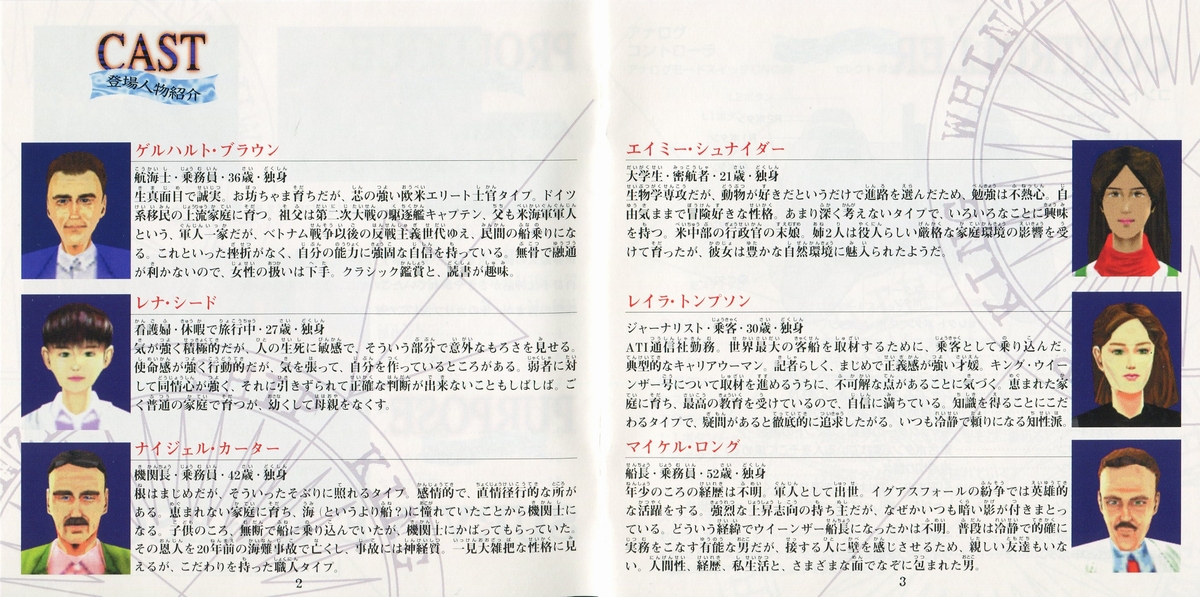 CAST
登場人物紹介
ゲルハルト・ブラウン
航海士・乗務員・36歳・独身
生真面目で誠実。お坊ちゃま育ちだが、芯の強い欧米エリート士官タイプ。ドイツ
系移民の上流家庭に育つ。祖父は第二次大戦の駆逐艦キャプテン、父も米海軍軍人
という、軍人一家だが、ベトナム戦争以後の反戦主義世代ゆえ、民間の船乗りにな
る。これといった挫折がなく、自分の能力に強固な自信を持っている。無骨で融通
が利かないので、女性の扱いは下手。クラシック鑑賞と、読書が趣味。
レナ・シード
看護婦・休暇で旅行中・27歳・独身
気が強く積極的だが、人の生死に敏感で、そういう部分で意外なもろさを見せる。
使命感が強く行動的だが、気を張って、自分を作っているところがある。弱者に対
して同情心が強く、それに引きずられて正確な判断が出来ないこともしばしば。ご
く普通の家庭で育つが、幼くして母親をなくす。
ナイジェル・カーター
機関長・乗務員・42歳・独身
根はまじめだが、そういったそぶりに照れるタイプ。感情的で、直情径行的な所が
ある。恵まれない家庭に育ち、海（というより船？）に憧れていたことから機関士に
なる。子供のころ、無断で船に乗り込んでいたが、機関士にかばってもらっていた。
その恩人を20年前の海難事故で亡くし、事故には神経質。一見大雑把な性格に見
えるが、こだわりを持った職人タイプ。
2
エイミー・シュナイダー
大学生・密航者・21歳・独身
生物学専攻だが、動物が好きだというだけで進路を選んだため、勉強は不熱心。自
由気ままで冒険好きな性格。あまり深く考えないタイプで、いろいろなことに興味
を持つ。米中部の行政官の末娘。姉2人は役人らしい厳格な家庭環境の影響を受
けて育ったが、彼女は豊かな自然環境に魅入られたようだ。
レイラ・トンプソン
ジャーナリスト・乗客・30歳・独身
ATI通信社勤務。世界最大の客船を取材するために、乗客として乗り込んだ。
典型的なキャリアウーマン。記者らしく、まじめで正義感が強い才媛。キング・ウイー
ンザー号について取材を進めるうちに、不可解な点があることに気づく。恵まれた家
庭に育ち、最高の教育を受けているので、自信に満ちている。知識を得ることにこだ
わるタイプで、疑問があると徹底的に追求したがる。いつも冷静で頼りになる知性派。
マイケル・ロング
船長・乗務員・52歳・独身
年少のころの経歴は不明。軍人として出世。イグアスフォールの紛争では英雄的
な活躍をする。強烈な上昇志向の持ち主だが、なぜかいつも暗い影が付きまとっ
ている。どういう経緯でウイーンザー船長になったかは不明。普段は冷静で的確に
実務をこなす有能な男だが、接する人に壁を感じさせるため、親しい友達もいな
い。人間性、経歴、私生活と、さまざまな面でなぞに包まれた男。
3